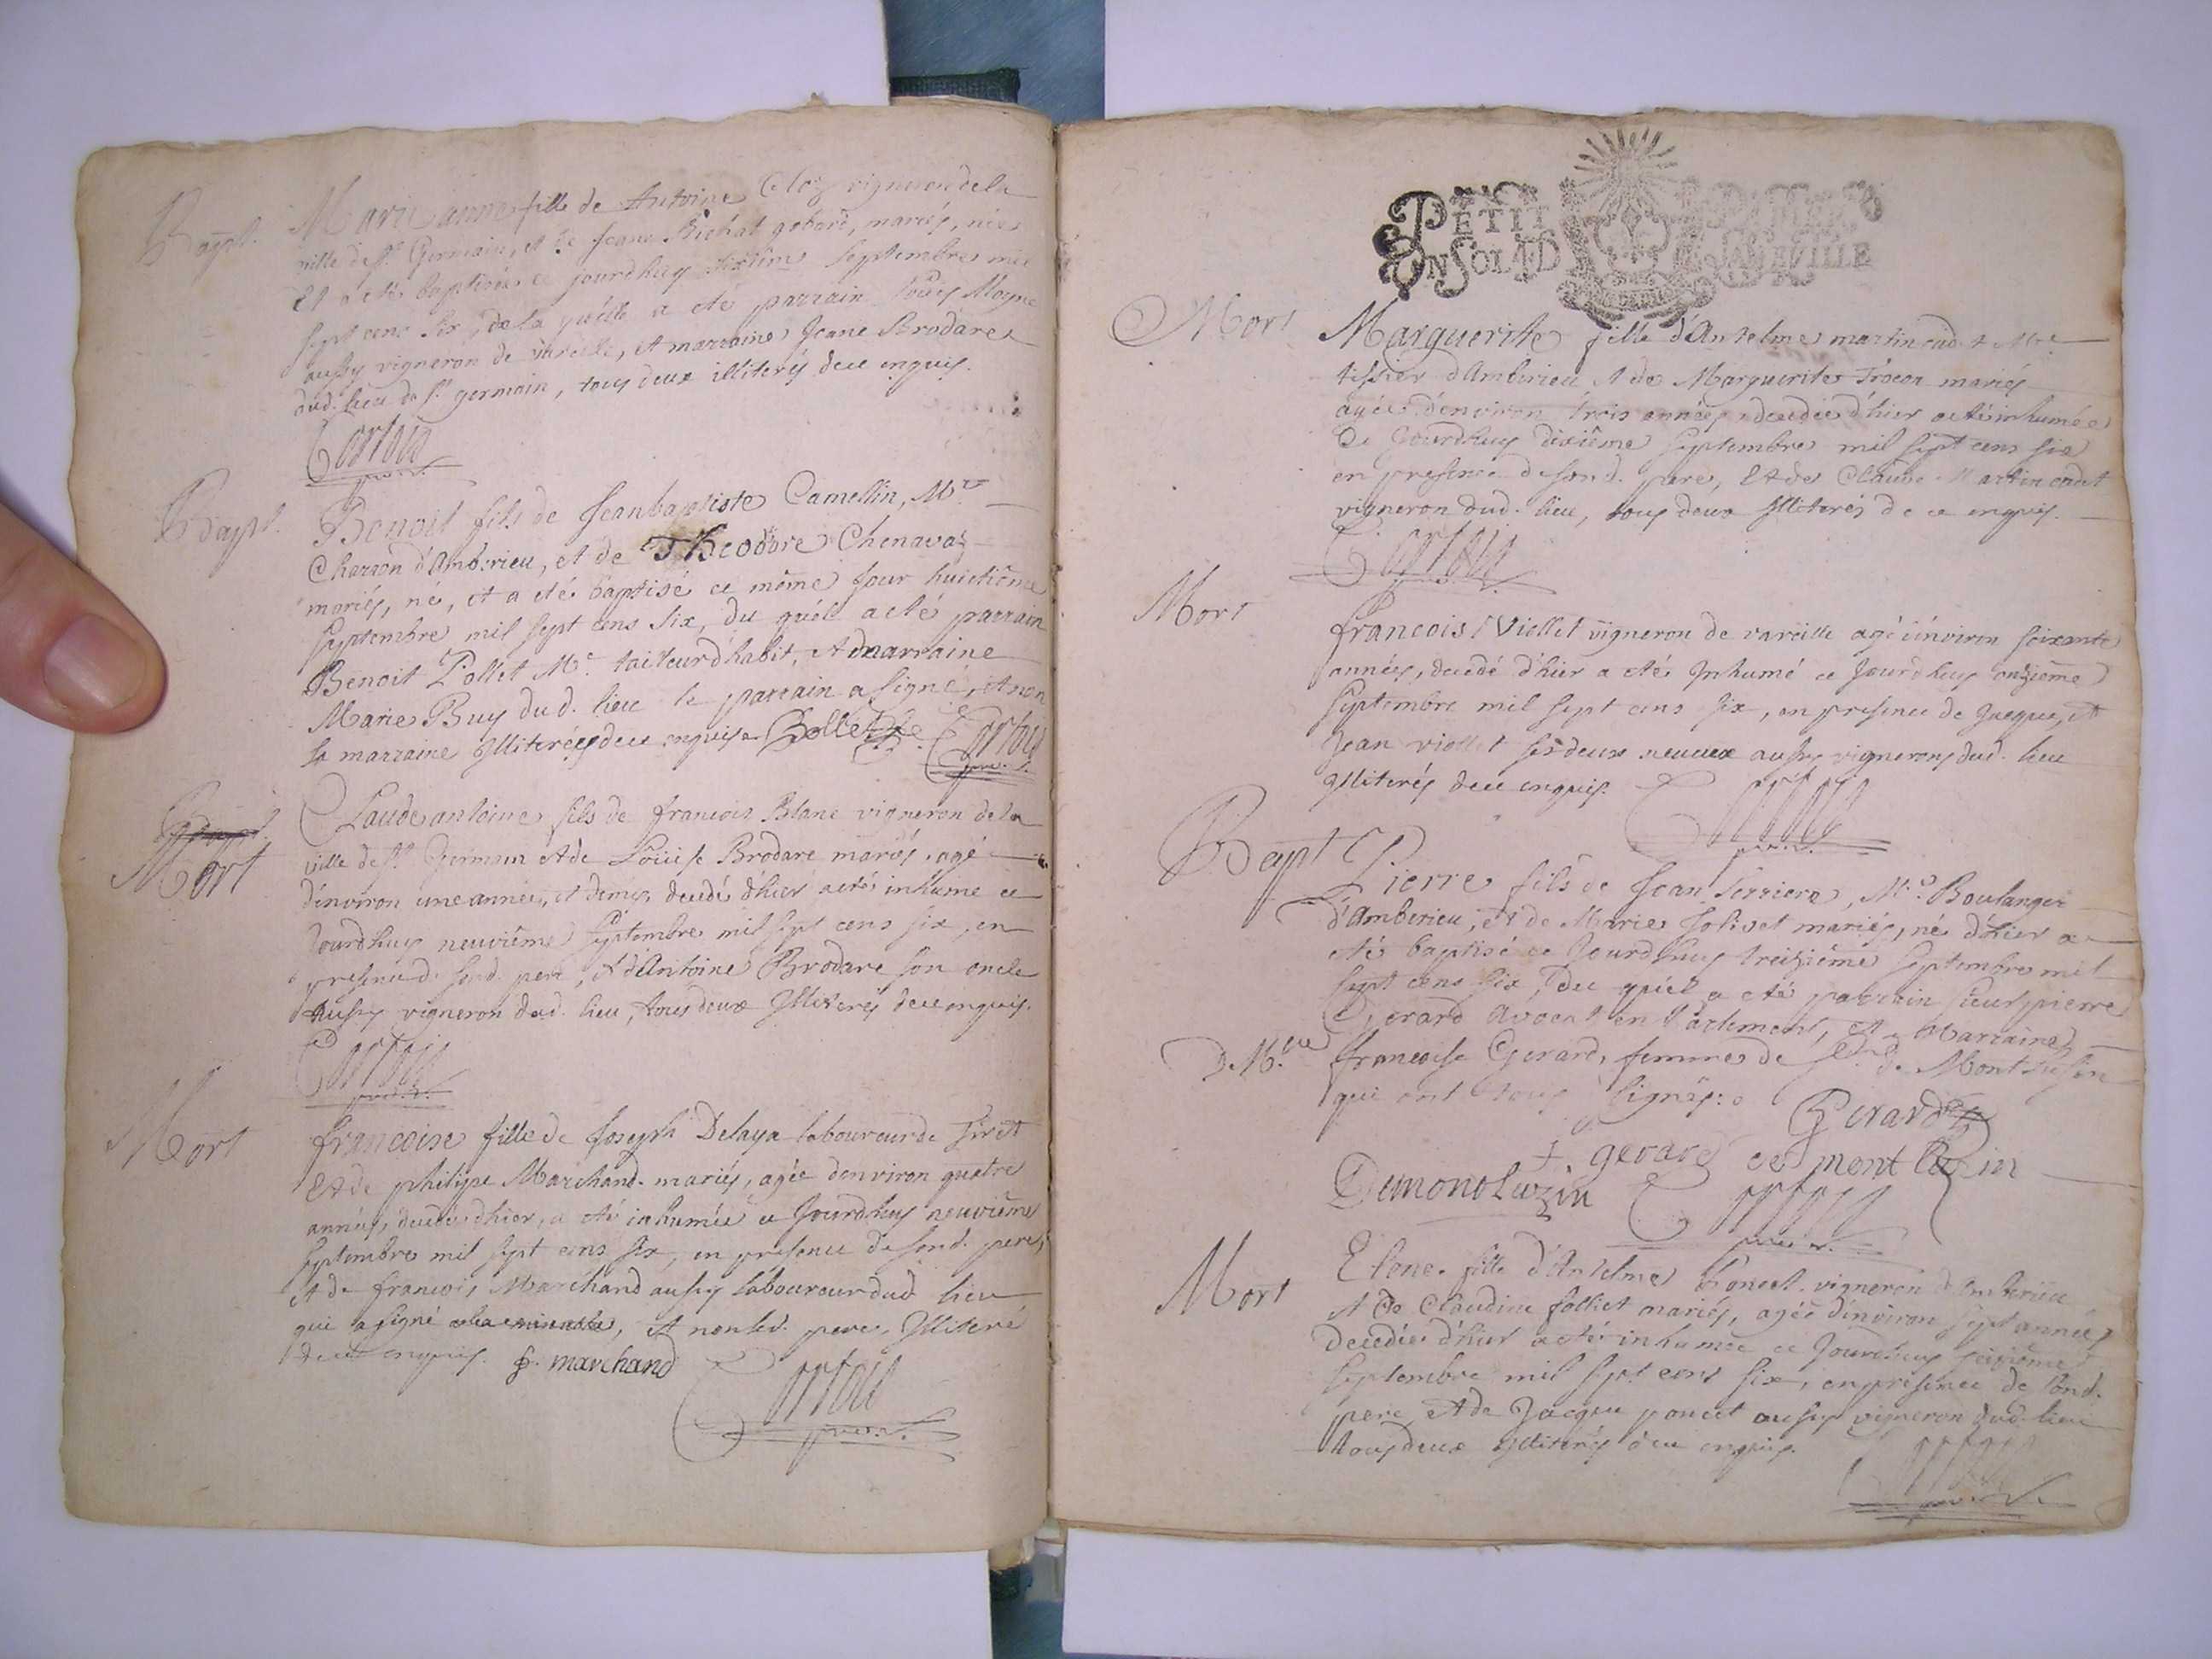 Bapt.
Marie anne fille de Antoine Cloz vigneron de la
ville de st. Germain, et de Jeane Bichat gobard, mariés, née
Et a eté baptisée ce jourdhuy sixiême Septembre mil
Sept cens six, de la quélle a eté parrain Loüis Moyne
aussy vigneron de vareille, et marraine Jeane Brodare
dud. lieu de st. germain, tous deux illiterés de ce enquis.
Bapt.
Benoit fils de Jeanbaptiste Camellin, Me.
Charron d'Amberieu, et de Theodore Chenavaz
mariés, né, et a eté baptisé ce même Jour huictiême
Septembre mil sept cens Six, du quél a eté parrain
Benoit Pollet Me. tailleur d'habit, et marraine
Marie Buy dud. lieu le parrain a signé, et non
la marraine Illiterée de ce enquise
Mort
Claude antoine fils de francois Blanc vigneron de la
ville de st. Germain et de Loüise Brodare mariés, agé
d'environ une année, et demy, decedé d'hier a eté inhumé ce
Jourdhuy neuviême Septembre mil sept cens six, en
presence de sond. pere, et d'Antoine Brodare son oncle
aussy vigneron dud. lieu, tous deux Illiterés de ce enquis.
Mort
francoise fille de Joseph Delaya laboureur de Tiret
Et de philipe Marchand mariés, agée d'environ quatre
années, decedée d'hier, a eté inhumée ce Jourdhuy neuviême
Septembre mil sept cens six, en presence de sond. pere,
et de francois Marchand aussy laboureur dud. lieu
qui a signé, et non led. pere, Illiteré
de ce enquis. f. marchand
PETIT PAPIER
UN SOL 4 D LA FEUILLE
Mort
Marguerite fille d'Antelme martin cadet Me.
tissier d'Amberieu et de Marguerite mariés
agée d'environ trois années decedée d'hier a eté inhumée
Ce Jourdhuy dixiême Septembre mil sept cens six
en presence de sond. pere, Et de Claude Martin cadet
vigneron dud. lieu, tous deux Illiterés de ce enquis.
Mort
francois Viollet vigneron de vareille agé d'environ soixante
années, decedé d'hier a eté Inhumé ce Jourdhuy onziême
Septembre mil sept cens six, en presence de Jacque, et
Jean viollet ses deux neveux aussy vignerons dud. lieu
Illiterés de ce enquis.
Bapt.
Pierre fils de Jean Ferriere, Me. Boulanger
d'Amberieu, et de Marie Jolivet mariés, né d'hier a
eté baptisé ce Jourdhuy treiziéme Septembre mil
sept cens six, Du quél a eté parrain sieur pierre
Gerard avocat en Parlement, et Marraine
D. Mlle. francoise Gerard, femme de sr. de Montluzin
qui ont tous signés.
Gerard
gerard de montluzin
Demonoluzin
Mort
Elene fille d'Antelme Poncet vigneron d'Amberieu
et de Claudine Jolliet mariés, agée d'environ sept années
decedée d'hier a eté inhumée ce Jourdhuy seiziême
Septembre mil sept cens six, en presence de sond.
pere, et de Jacque poncet aussy vigneron dud. lieu
tous deux Illiterés de ce enquis.